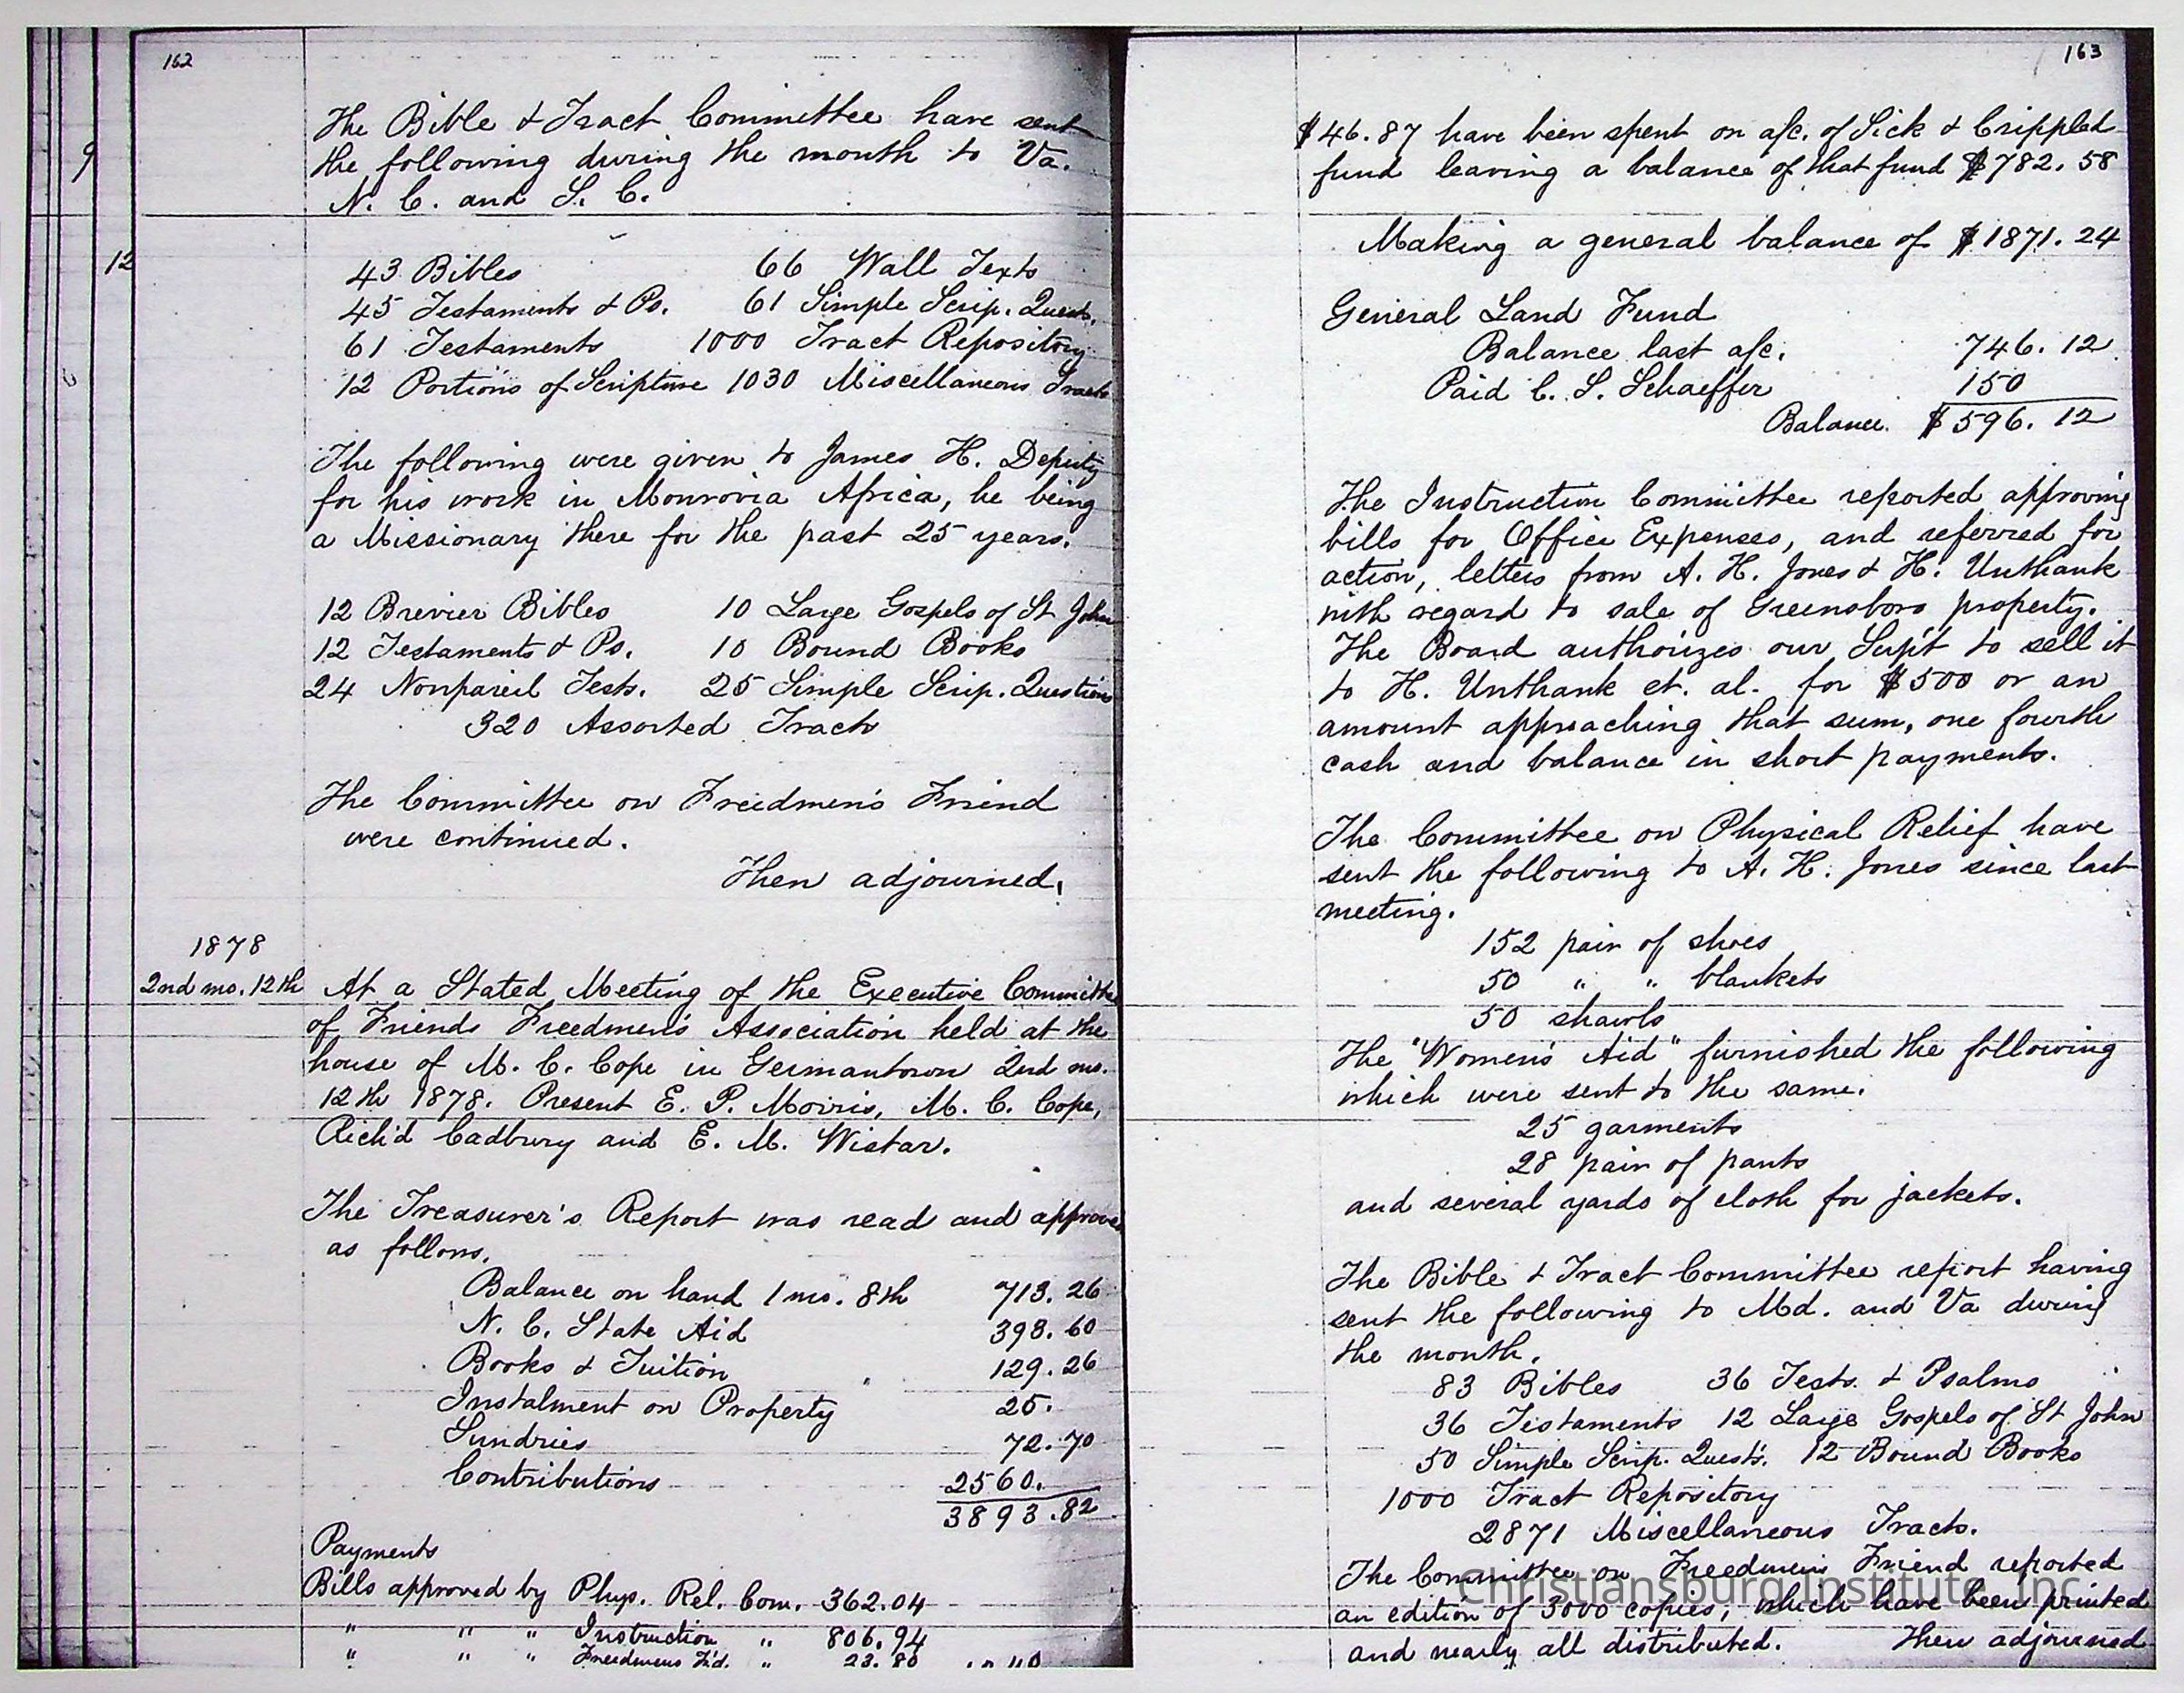 162
The Bible & Tract Committee have sent
the following during the month to Va.
N. C. and S. C.
9
12
43 Bibles 66 Wall Texts
45 Testaments & Ps. 61 Simple Scrip. Quest.
61 Testaments 1000 Tract Repository
12 Portions of Scripture 1030 Miscellaneous Tracts
The following were given to James H. Deputy
for his work in Monrovia Africa, he being
a Missionary there for the past 25 years.
12 Brevier Bibles 10 Large Gospels of St John
12 Testaments & Ps. 10 Bound Books
24 Nonpareil Tests. 25 Simple Scrip. Questions
320 Assorted Tracts
The Committee on Freedmen's Friend
were continued.
Then adjourned.
1878
2nd mo. 12th At a Stated Meeting of the Executive Committe
of Friends Freedmen's Association held at the
house of M. C. Cope in Germantown 2nd mo.
12th 1878. Present E. P. Morris, M. C. Cope,
Rich'd Cadbury and E. M. Wistar.
The Treasurer's Report was read and approved
as follows.
Balance on hand 1 mo. 8th 713.26
N. C. State Aid 393.60
Books & Tuition 129.26
Instalment on Property 25.
Sundries 72.70
Contributions 2560.
3893.82
Payments
Bills approved by Phys. Rel. Com. 362.04
" " " Instruction " 806.94
" " " Freedmens Fd. " 23.80
163
$46.87 have been spent on a/c. of Sick & Crippled
fund leaving a balance of that fund $782.58
Making a general balance of $1871.24
General Land Fund
Balance last a/c. 746.12
Paid C. S. Schaeffer 150
Balance. $596.12
The Instruction Committee reported approving
bills for Office Expenses, and referred for
action, letters from A. H. Jones & H. Unthank
with regard to sale of Greensboro property.
The Board authorizes our Sup't to sell it
to H. Unthank et. al. for $500 or an
amount approaching that sum, one fourth
cash and balance in short payments.
The Committee on Physical Relief have
sent the following to A. H. Jones since last
meeting.
152 pair of shoes
50 " " blankets
50 shawls
The "Women's Aid" furnished the following
which were sent to the same.
25 garments
28 pair of pants
and several yards of cloth for jackets.
The Bible & Tract Committee report having
sent the following to Md. and Va during
the month.
83 Bibles 36 Tests. & Psalms
36 Testaments 12 Large Gospels of St John
50 Simple Scrip. Quests. 12 Bound Books
1000 Tract Repository
2871 Miscellaneous Tracts.
The Committee on Freedmens Friend reported
an edition of 3000 copies, which have been printed
and nearly all distributed. Then adjourned
Christiansburg Institute, Inc.